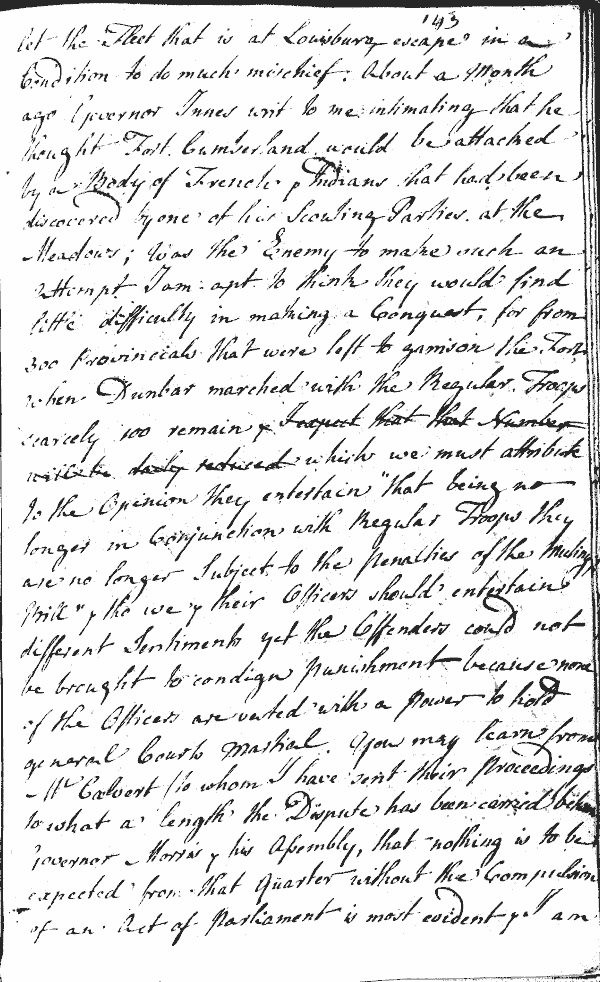 143
let the Fleet that is at Louisburg escape in a
Condition to do much mischief. About a Month
ago Governor Innes writ to me intimating that he
thought Fort Cumberland would be attacked
by a Body of French & Indians that had been
discovered by one of his Scouting Parties at the
Meadows; Was the Enemy to make such an
attempt I am apt to think they would find
little difficulty in making a Conquest, for from
300 Provincials that were left to garrison the Fort
when Dunbar marched with the Regular Troops
scarcely 100 remain & I expect that that Number
will be daily reduced which we must attribute
to the Opinion they entertain "that being no
longer in Conjunction with Regular Troops they
are no longer Subject to the penalties of the Mutiny
Bill" & tho we & their Officers should entertain
different Sentiments yet the Offenders could not
be brought to condign punishment because none
of the Officers are vested with a power to hold
general Courts Martial. You may learn from
Mr Calvert (to whom I have sent their proceedings
to what a length the Dispute has been carried betwn
Governor Morris & his Assembly, that nothing is to be
expected from that Quarter without the Compulsion
of an Act of Parliament is most evident & I am